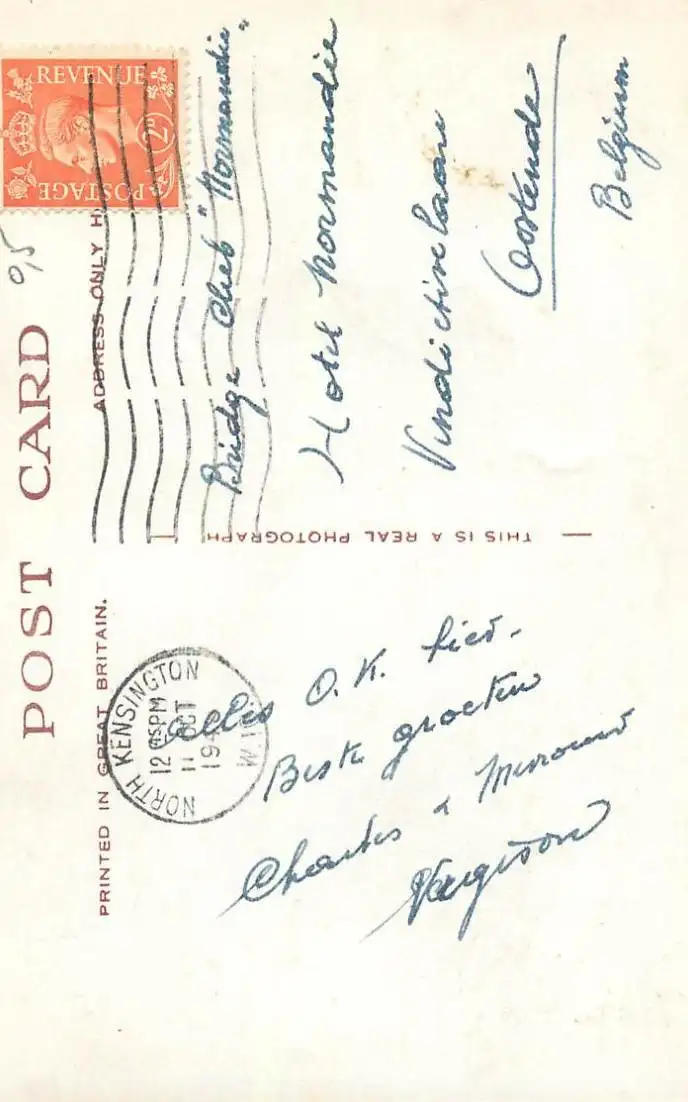 POST CARD
PRINTED IN GREAT BRITAIN.
ADDRESS ONLY
THIS IS A REAL PHOTOGRAPH
REVENUE
2D
POSTAGE
0,5
NORTH KENSINGTON
12 45PM
11 OCT
19
W.1
Alles O.K. hier.
Beste groeten
Charles &
Bridge Club "Normandie"
Hotel Normandie
Vindictivelaan
Oostende
Belgium